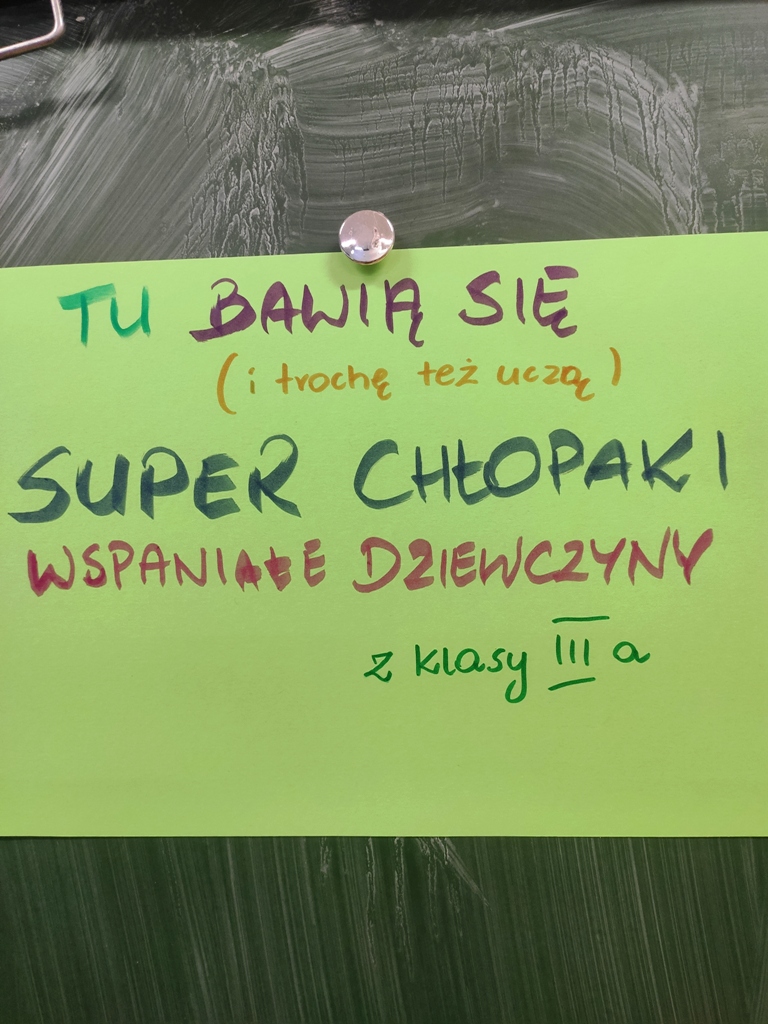 TU BAWIĄ SIĘ
(i trochę też uczą)
SUPER CHŁOPAKI
WSPANIAŁE DZIEWCZYNY
z klasy III a